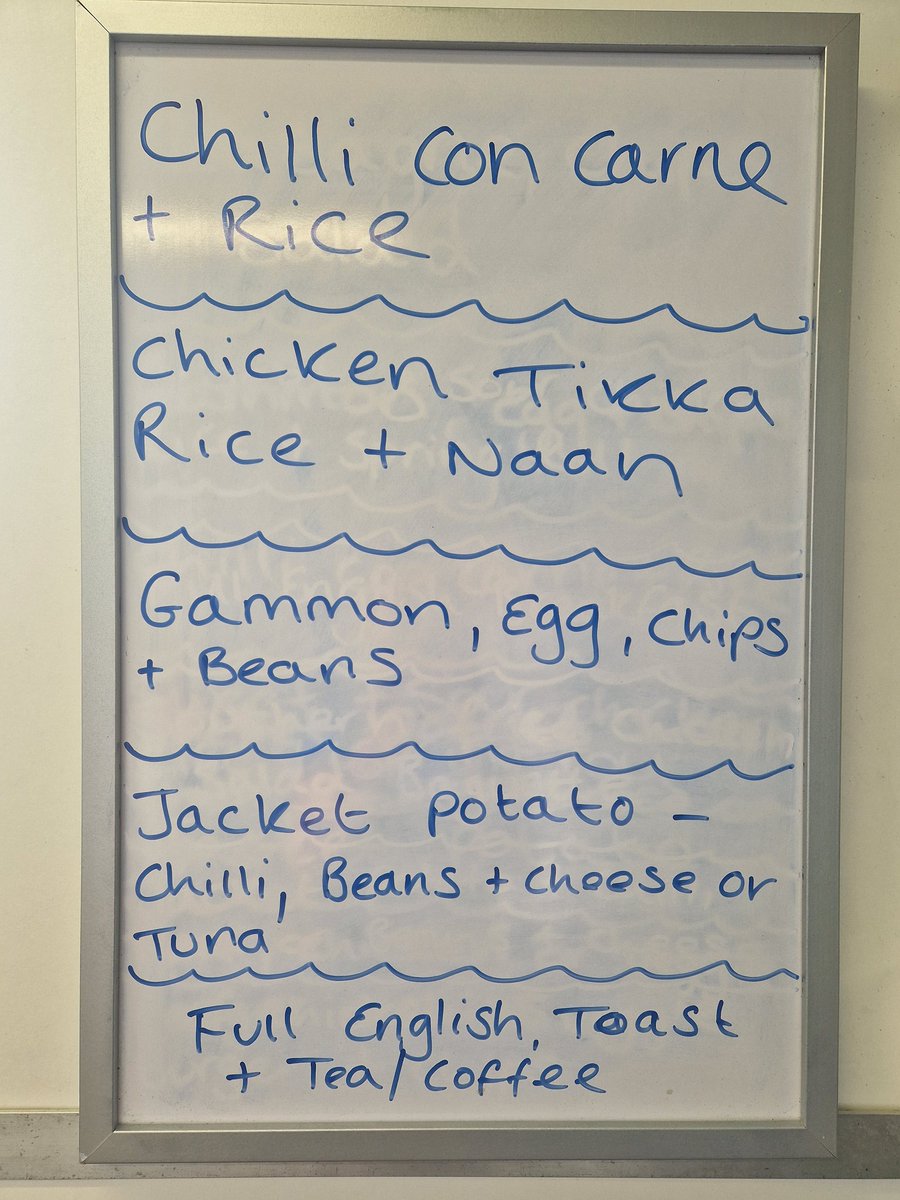 Chilli Con Carne
+ Rice
Chicken Tikka
Rice + Naan
Gammon, Egg, Chips
+ Beans
Jacket Potato -
Chilli, Beans + Cheese or
Tuna
Full English, Toast
+ Tea/Coffee